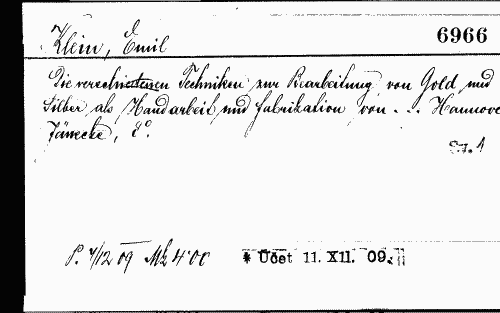 Klein, Emil
6966
Die verschiedenen Techniken zur Bearbeitung von Gold und
Silber als Handarbeit und Fabrikation von ... Hannove
Jänecke, 8°.
P. 4/12 09 Mk 4·00
* Účet 11. XII. 09.